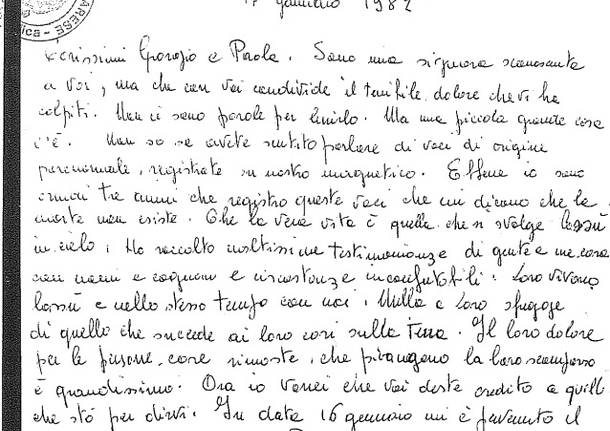 17 gennaio 1982
ARESE
ica -
Carissimi Giorgio e Paola. Sono una signora sconosciuta
a voi, ma che con voi condivide il terribile dolore che vi ha
colpiti. Non ci sono parole per lenirlo. Ma una piccola grande cosa
c'è. Non so se avete sentito parlare di voci di origine
paranormale, registrate su nastro magnetico. Ebbene io sono
ormai tre anni che registro queste voci che mi dicono che la
morte non esiste. Che la vera vita è quella che si svolge lassù
in cielo. Ho raccolto moltissime testimonianze di gente a me cara
con nomi e cognomi e circostanze inconfutabili. Loro vivono
lassù e nello stesso tempo con noi. Nulla a loro sfugge
di quello che succede ai loro cari sulla terra. Il loro dolore
per le persone care rimaste, che piangono la loro scomparsa
è grandissimo. Ora io vorrei che voi deste credito a quello
che stò per dirvi. In data 16 gennaio mi è pervenuto il